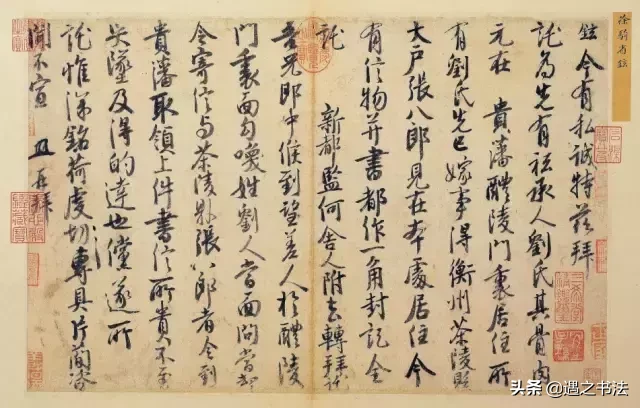 徐騎省鉉
鉉今有私誠特茲拜
託為先有祗承人劉氏其骨肉
元在 貴藩醴陵門裏居住所
有劉氏先已嫁事得衡州茶陵縣
大户張八郎見在本處居住今
有信物并書都作一角封訖全
託 新都監何舍人附去轉拜託
吾兄郎中候到望差人於醴陵
門裏面勾喚姓劉人當面問當却
令寄信与茶陵縣張八郎者令到
貴藩取領上件書信所貴不至
失墜及得的達也儻遂所
託惟深銘荷虔切專具片簡咨
聞不宣 再拜
头条 @遇之书法